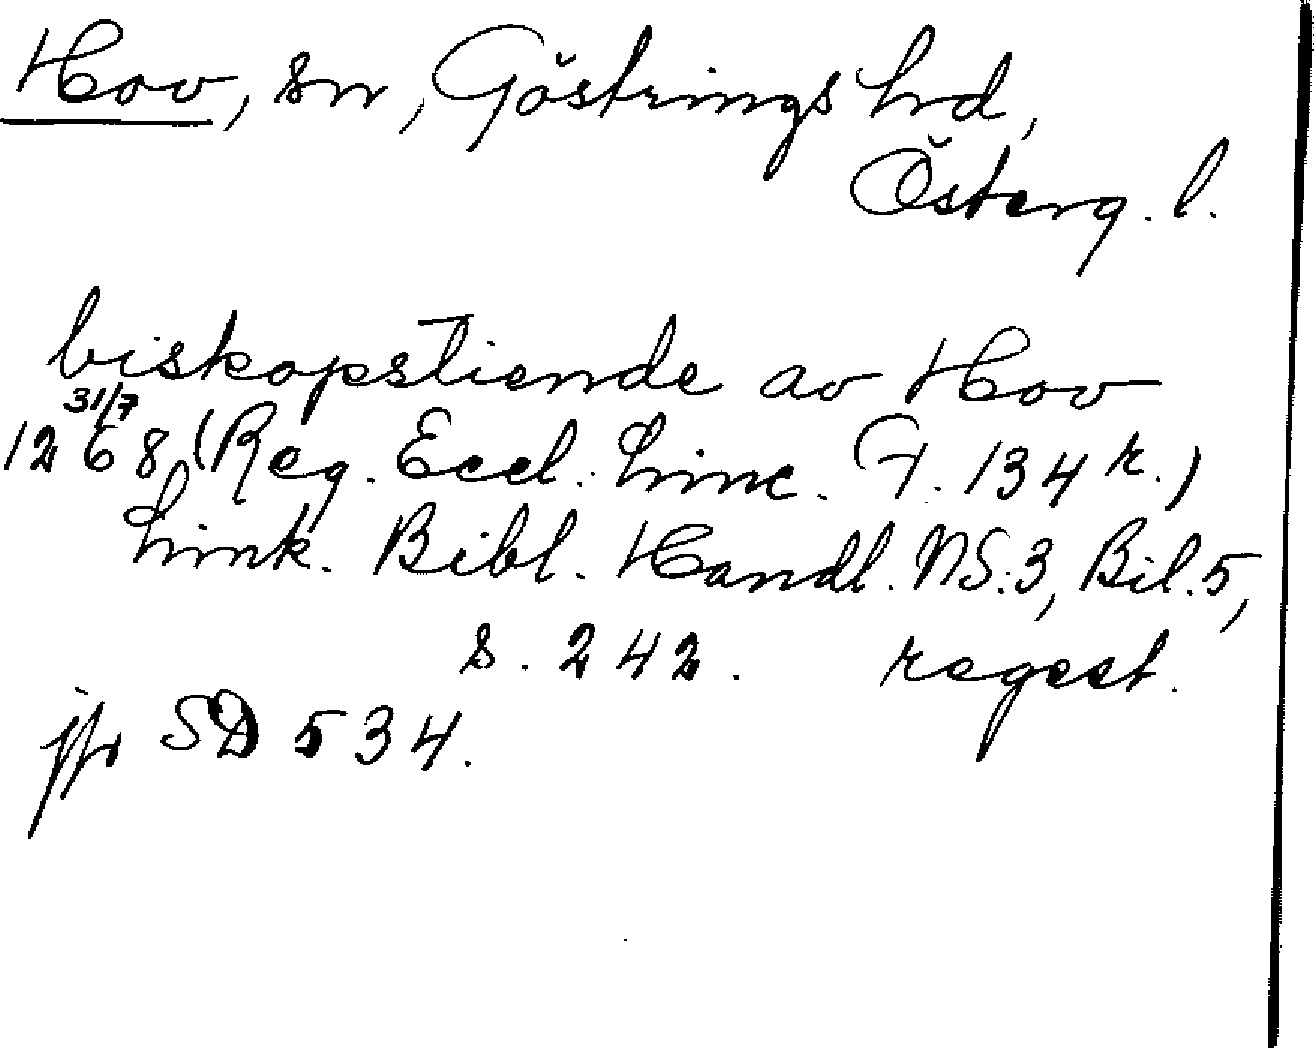 Hov, sn, Göstrings hrd,
Österg. l.
biskopstiende av Hov
31/7
1268 (Reg. Eccl. Linc. F. 134 r.)
Link. Bibl. Handl. NS:3, Bil. 5,
s. 242. regest.
jfr SD 534.